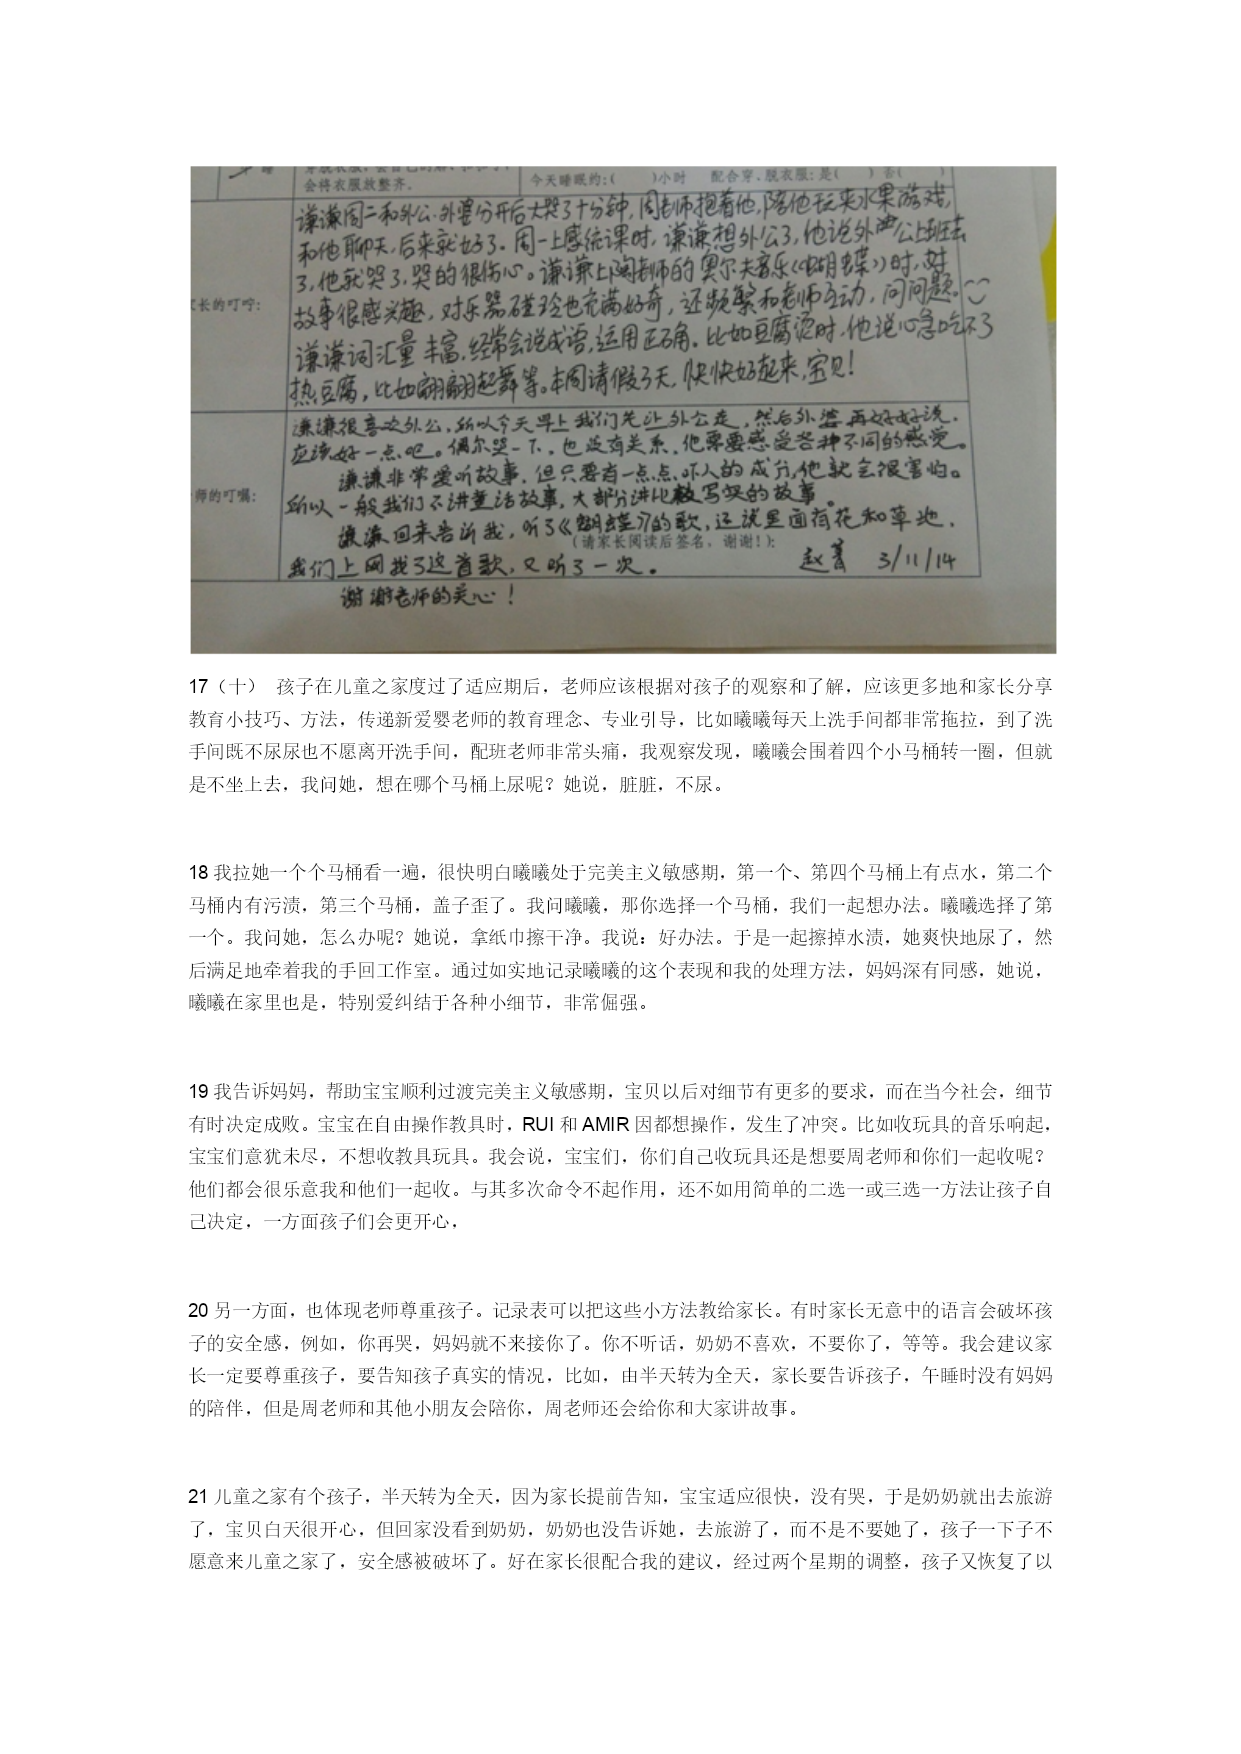 会将衣服放整齐。
今天睡眠约：（ ）小时 配合穿、脱衣服：是（ ）否（ ）
谦谦周二和外公、外婆分开后大哭了十分钟，周老师抱着他，陪他玩夹水果游戏，
和他聊天，后来就好了。周一上感统课时，谦谦想外公了，他说外公上班去
了，他就哭了，哭的很伤心。谦谦上陶老师的奥尔夫音乐《蝴蝶》时，对
长的叮咛：
故事很感兴趣，对乐器碰铃也充满好奇，还频繁和老师互动，问问题。
谦谦词汇量丰富，经常会说成语，运用正确。比如豆腐烫时，他说心急吃不了
热豆腐，比如翩翩起舞等。本周请假3天，快快好起来，宝贝！
谦谦很喜欢外公，所以今天早上我们先让外公走，然后外婆再好好说，
应该好一点吧。偶尔哭一下，也没有关系，他需要感受各种不同的感觉。
谦谦非常爱听故事，但只要有一点点吓人的成分，他就会很害怕。
师的叮嘱：
所以一般我们不讲童话故事，大部分讲比较写实的故事。
谦谦回来告诉我，听了《蝴蝶》的歌，还说里面有花和草地，
（请家长阅读后签名，谢谢！）：
我们上网找了这首歌，又听了一次。 3/11/14
谢谢老师的关心！
17（十） 孩子在儿童之家度过了适应期后，老师应该根据对孩子的观察和了解，应该更多地和家长分享
教育小技巧、方法，传递新爱婴老师的教育理念、专业引导，比如曦曦每天上洗手间都非常拖拉，到了洗
手间既不尿尿也不愿离开洗手间，配班老师非常头痛，我观察发现，曦曦会围着四个小马桶转一圈，但就
是不坐上去，我问她，想在哪个马桶上尿呢？她说，脏脏，不尿。
18 我拉她一个个马桶看一遍，很快明白曦曦处于完美主义敏感期，第一个、第四个马桶上有点水，第二个
马桶内有污渍，第三个马桶，盖子歪了。我问曦曦，那你选择一个马桶，我们一起想办法。曦曦选择了第
一个。我问她，怎么办呢？她说，拿纸巾擦干净。我说：好办法。于是一起擦掉水渍，她爽快地尿了，然
后满足地牵着我的手回工作室。通过如实地记录曦曦的这个表现和我的处理方法，妈妈深有同感，她说，
曦曦在家里也是，特别爱纠结于各种小细节，非常倔强。
19 我告诉妈妈，帮助宝宝顺利过渡完美主义敏感期，宝贝以后对细节有更多的要求，而在当今社会，细节
有时决定成败。宝宝在自由操作教具时，RUI 和 AMIR 因都想操作，发生了冲突。比如收玩具的音乐响起，
宝宝们意犹未尽，不想收教具玩具。我会说，宝宝们，你们自己收玩具还是想要周老师和你们一起收呢？
他们都会很乐意我和他们一起收。与其多次命令不起作用，还不如用简单的二选一或三选一方法让孩子自
己决定，一方面孩子们会更开心，
20 另一方面，也体现老师尊重孩子。记录表可以把这些小方法教给家长。有时家长无意中的语言会破坏孩
子的安全感，例如，你再哭，妈妈就不来接你了。你不听话，奶奶不喜欢，不要你了，等等。我会建议家
长一定要尊重孩子，要告知孩子真实的情况，比如，由半天转为全天，家长要告诉孩子，午睡时没有妈妈
的陪伴，但是周老师和其他小朋友会陪你，周老师还会给你和大家讲故事。
21 儿童之家有个孩子，半天转为全天，因为家长提前告知，宝宝适应很快，没有哭，于是奶奶就出去旅游
了，宝贝白天很开心，但回家没看到奶奶，奶奶也没告诉她，去旅游了，而不是不要她了，孩子一下子不
愿意来儿童之家了，安全感被破坏了。好在家长很配合我的建议，经过两个星期的调整，孩子又恢复了以